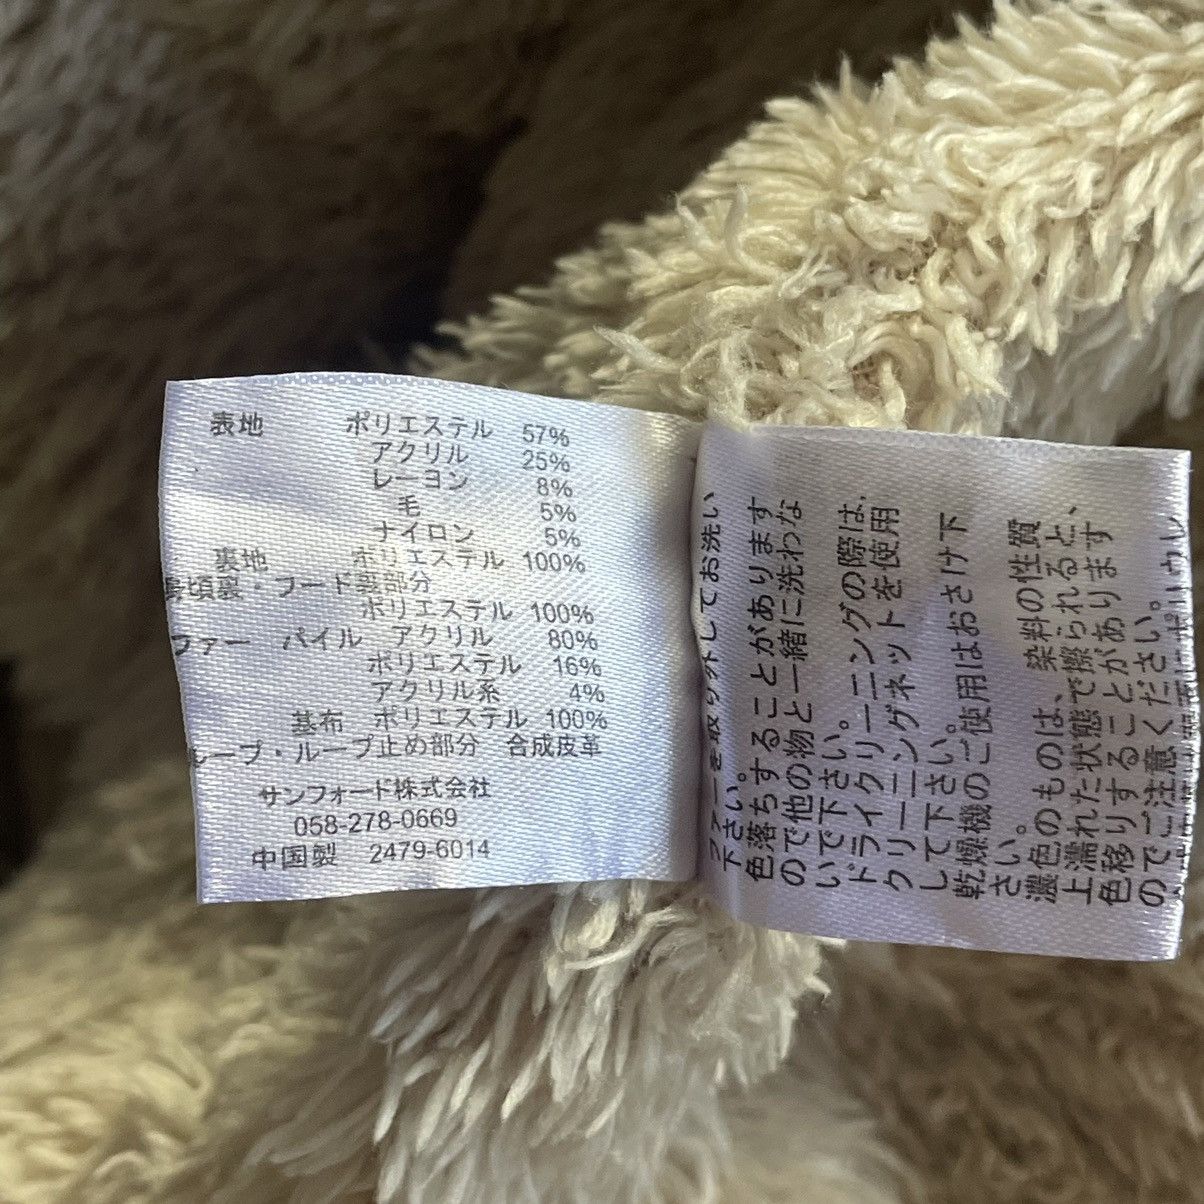 表地 ポリエステル 57%
アクリル 25%
レーヨン 8%
毛 5%
ナイロン 5%
裏地 ポリエステル 100%
身頃裏・フード裏部分
ポリエステル 100%
ファー パイル アクリル 80%
ポリエステル 16%
アクリル系 4%
基布 ポリエステル 100%
ループ・ループ止め部分 合成皮革
サンフォード株式会社
058-278-0669
中国製 2479-6014
ファーを取り外してお洗い
下さい。
色落ちすることがあります
ので他の物と一緒に洗わな
いで下さい。
ドライクリーニングの際は、
クリーニングネットを使用
して下さい。
乾燥機のご使用はおさけ下
さい。
濃色のものは、染料の性質
上濡れた状態で擦られると、
色移りすることがあります
のでご注意ください。